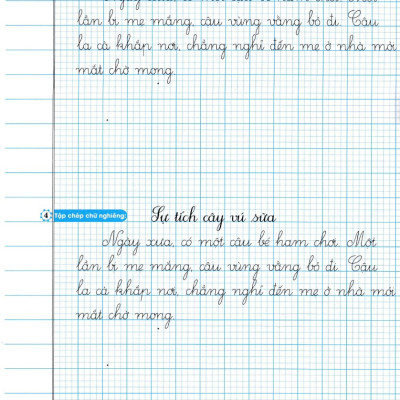 lần bị mẹ mắng, cậu vùng vằng bỏ đi. Cậu
la cà khắp nơi, chẳng nghĩ đến mẹ ở nhà mỏi
mắt chờ mong.
4 Tập chép chữ nghiêng:
Sự tích cây vú sữa
Ngày xưa, có một cậu bé ham chơi. Một
lần bị mẹ mắng, cậu vùng vằng bỏ đi. Cậu
la cà khắp nơi, chẳng nghĩ đến mẹ ở nhà mỏi
mắt chờ mong.